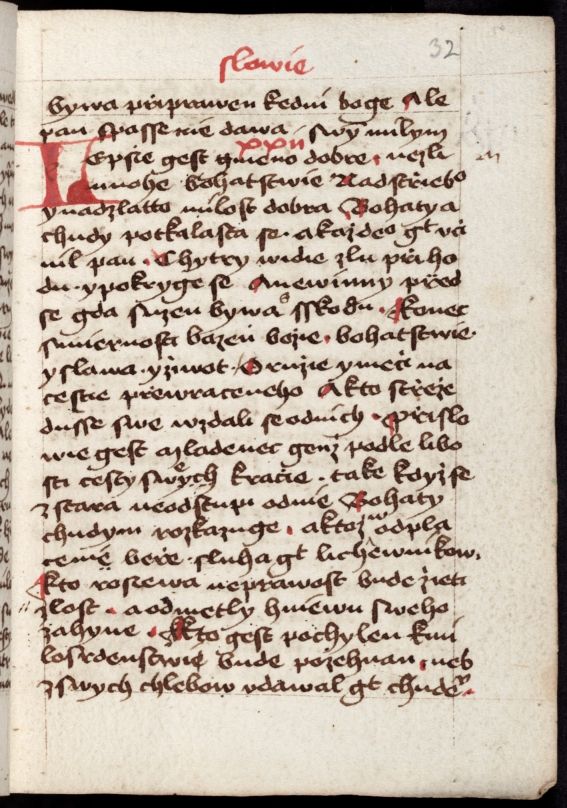 32
slowie
bywa připrawen kedni boge Ale
pan spassenie dawa swym milym
xxii
Lepsie gest gmeno dobre nezli
mnohe bohatstwie Nadstřiebo
ynadzlatto milost dobra Bohaty a
chudy potkalasta se akazdeo gt vči
nil pan Chytry widie zlu přiho
du ypokryge se Anewinny před
se gda suzen bywa sskodu Konec
smiernosti bazen bozie bohatstwie
yslawa yziwot Oruzie ymeči na
cestie přewraceneho Akto střeze
dusse swe wzdali seodnich Přislo
wie gest azladenec genz podle libo
sti cesty swych kračie take kdyz se
zstara neodstupi odnie Bohaty
chudym rozkazuge aktoz odpla
cenie bere sluha gt lichewnikow
Kto rozsewa neprawost bude zieti
zlost aodmetly hniewu sweho
zahyne Kto gest pochylen kmi
losrdenstwie bude pozehnan neb
zswych chlebow vdawal gt chude